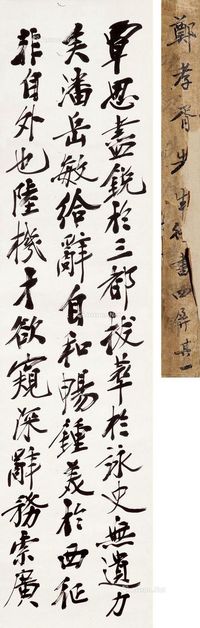 鄭孝胥 書四屏其一
覃思盡銳於三都拔萃於詠史無遺力
矣潘岳敏給辭自和暢鍾美於西征
非自外也陸機才欲窺深辭務索廣